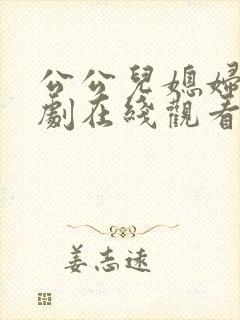 公公兒媳婦
劇在綫觀看
姜志遠